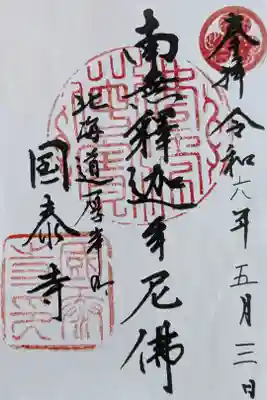 奉拝 令和六年五月三日
南無釋迦牟尼佛
北海道厚岸町
国泰寺